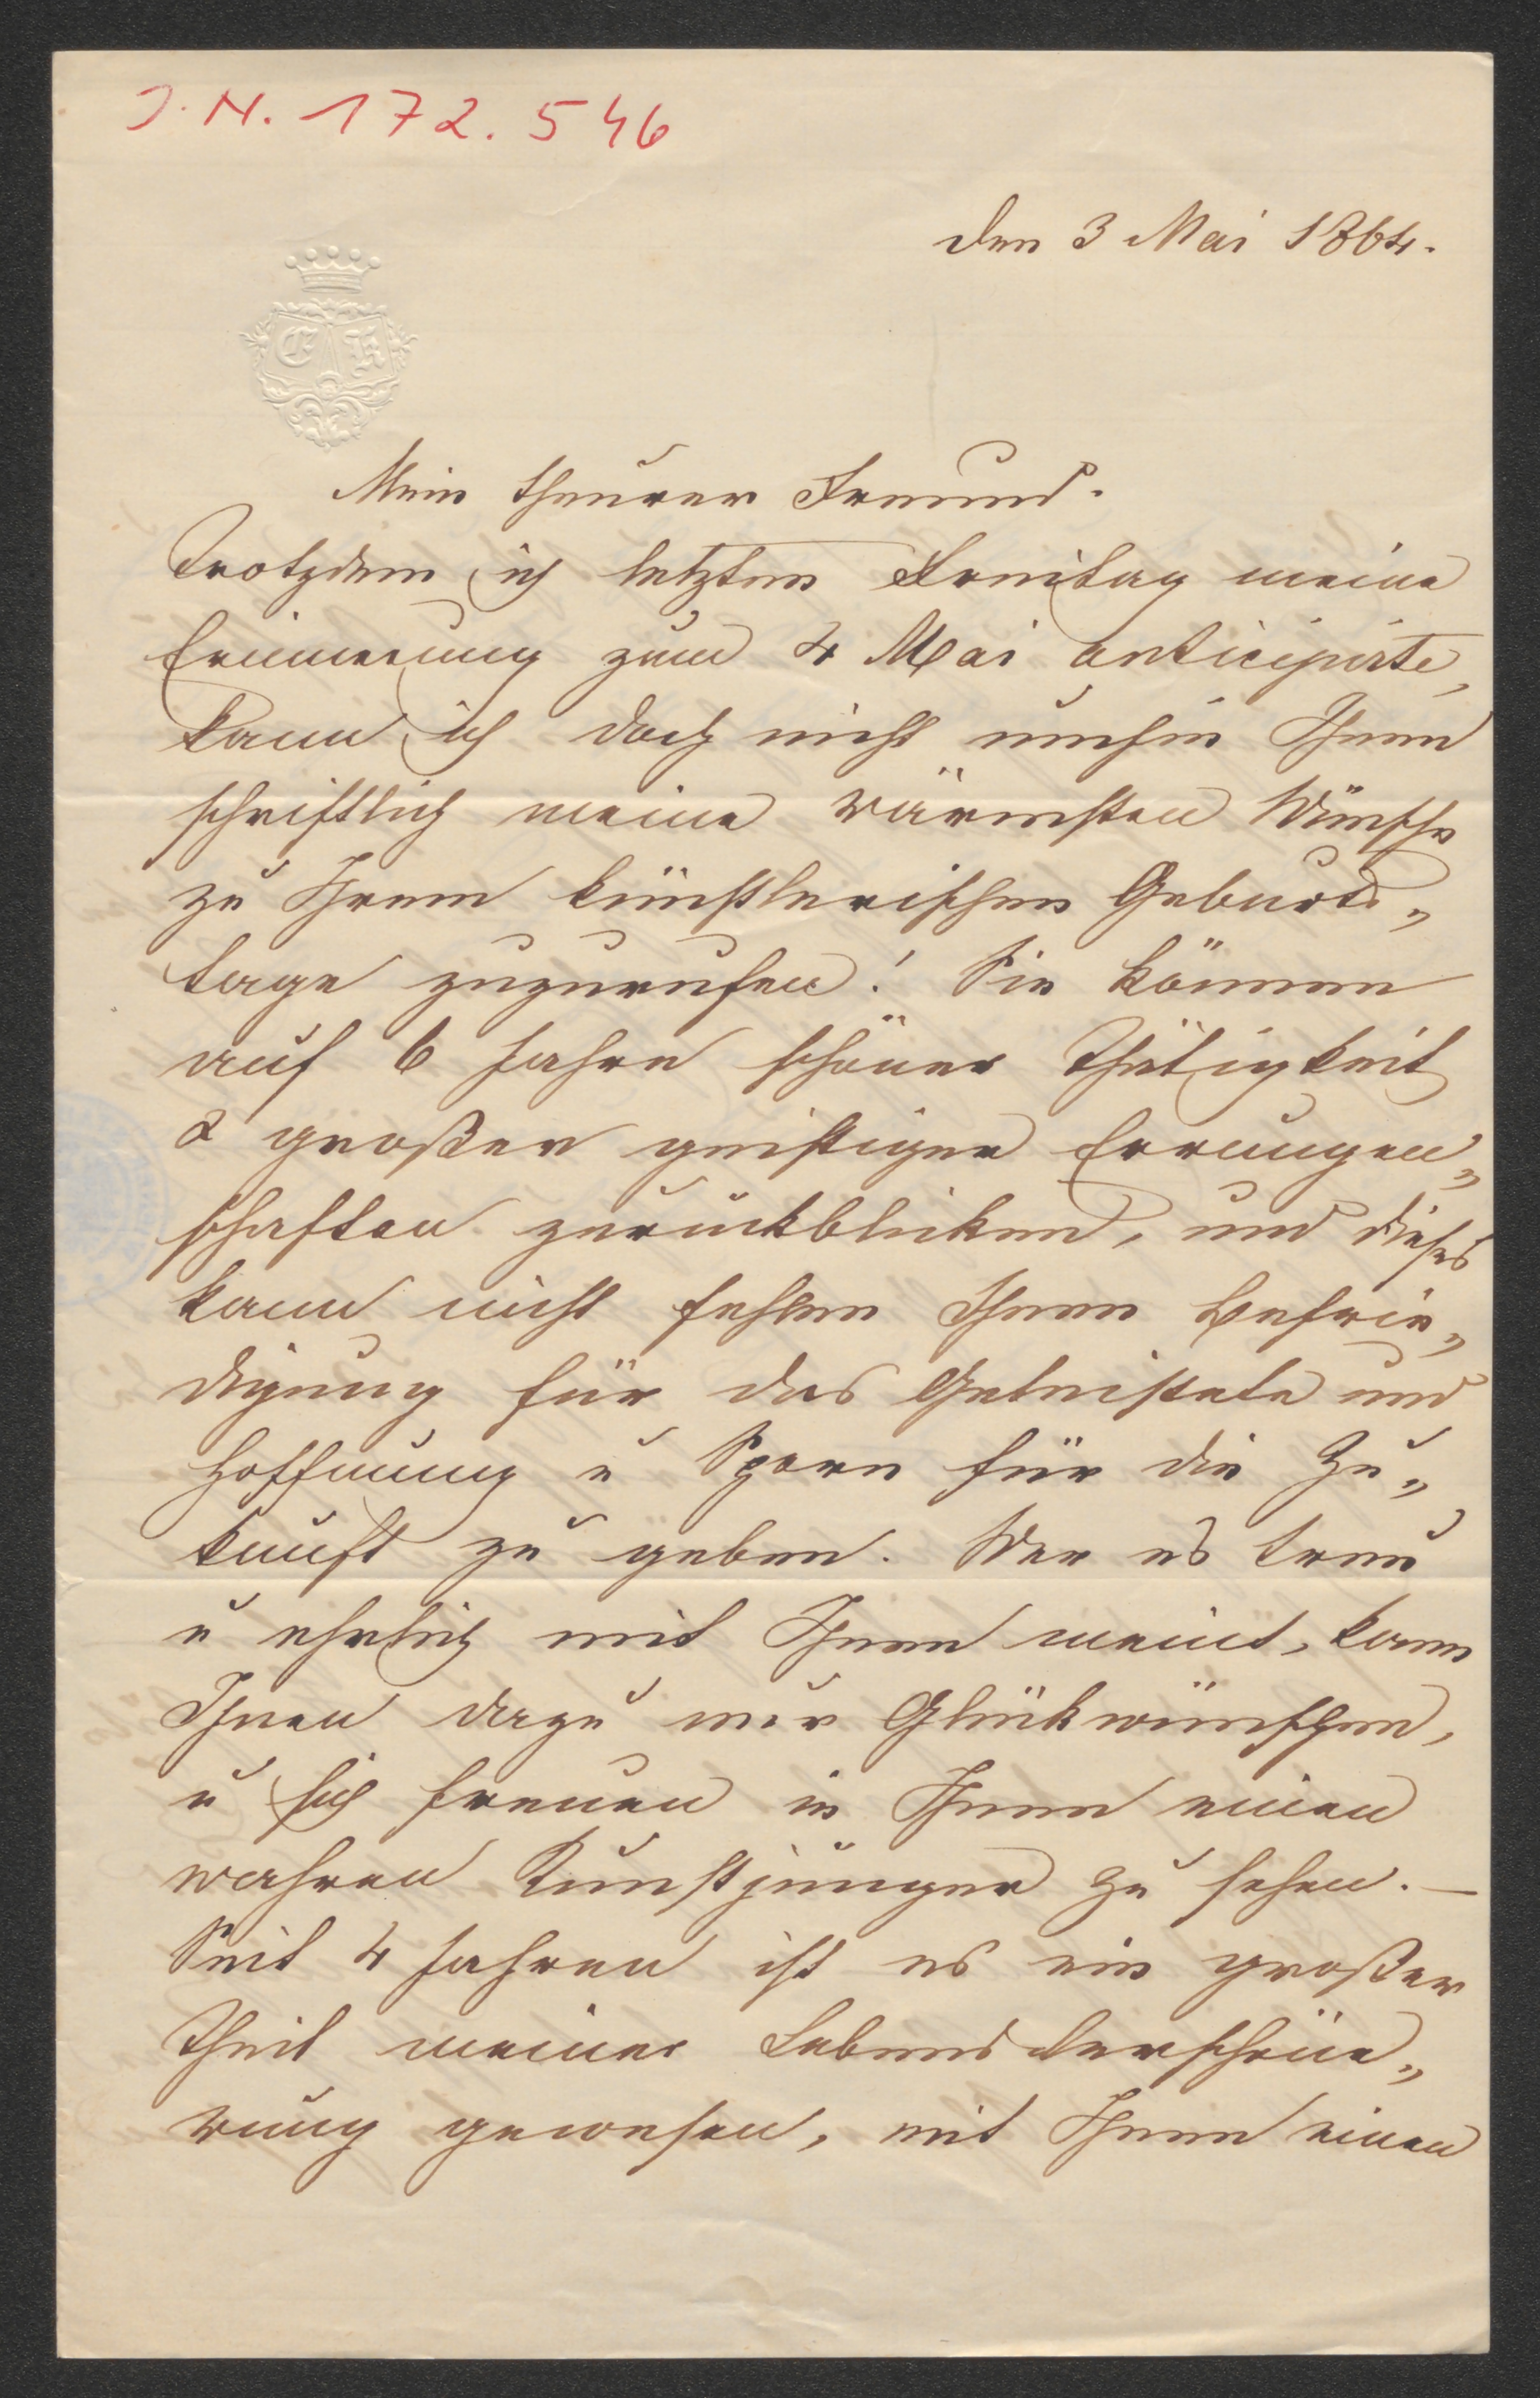 J. N. 172.546
den 3 Mai 1864.
E K
Mein theurer Freund.
Trotzdem ich letzten Freitag meine
Erinnerung zum 4 Mai anticipirte,
kann ich doch nicht umhin Ihnen
schriftlich meine wärmsten Wünsche
zu Ihrem künstlerischen Geburts„
tage zuzurufen! Sie können
auf 6 Jahre schöner Thätigkeit
& großer geistiger Errungen„
schaften zurückblicken, und dieses
kann nicht fehlen Ihnen Befrie„
digung für das Geleistete und
Hoffnung u Sporn für die Zu„
kunft zu geben. Wer es treu
u ehrlich mit Ihnen meint, kann
Ihnen dazu nur Glückwünschen,
u sich freuen in Ihnen einen
wahren Kunstjünger zu sehen. —
Seit 4 Jahren ist es ein großer
Theil meiner Lebensverschöne„
rung gewesen, mit Ihnen einen